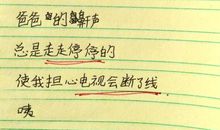 爸爸的鼾声
总是走走停停的
使我担心电视会断了线
咦